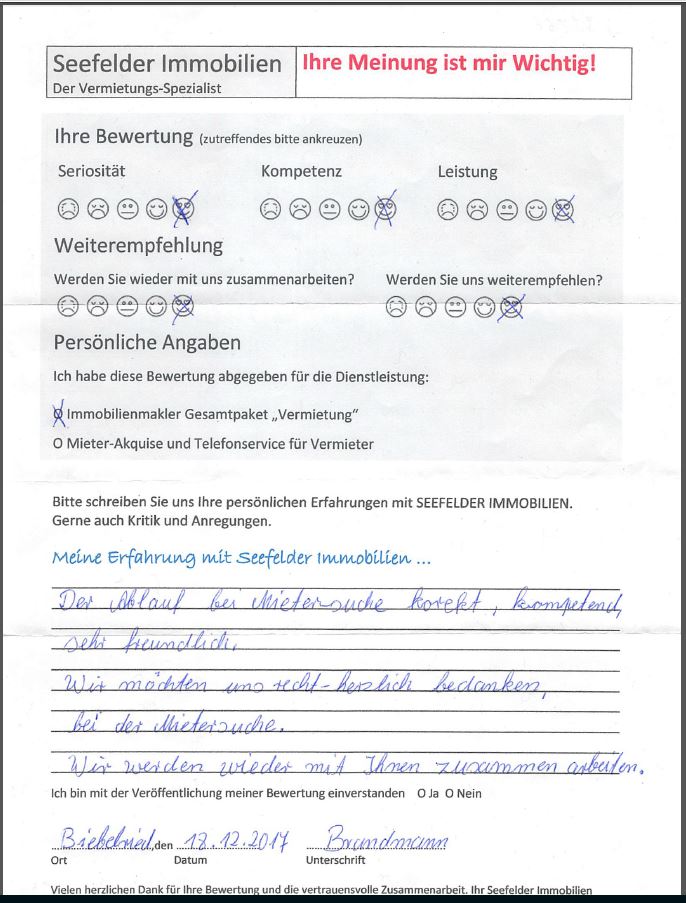 Seefelder Immobilien
Der Vermietungs-Spezialist
Ihre Meinung ist mir Wichtig!
Ihre Bewertung (zutreffendes bitte ankreuzen)
Seriosität Kompetenz Leistung
Weiterempfehlung
Werden Sie wieder mit uns zusammenarbeiten? Werden Sie uns weiterempfehlen?
Persönliche Angaben
Ich habe diese Bewertung abgegeben für die Dienstleistung:
O Immobilienmakler Gesamtpaket „Vermietung“
O Mieter-Akquise und Telefonservice für Vermieter
Bitte schreiben Sie uns Ihre persönlichen Erfahrungen mit SEEFELDER IMMOBILIEN.
Gerne auch Kritik und Anregungen.
Meine Erfahrung mit Seefelder Immobilien ...
Der Ablauf bei Mietersuche korekt, kompetend,
sehr freundlich.
Wir möchten uns recht-herzlich bedanken,
bei der Mietersuche.
Wir werden wieder mit Ihnen zusammen arbeiten.
Ich bin mit der Veröffentlichung meiner Bewertung einverstanden O Ja O Nein
Biebelried, den 18.12.2017 Brandmann
Ort Datum Unterschrift
Vielen herzlichen Dank für Ihre Bewertung und die vertrauensvolle Zusammenarbeit. Ihr Seefelder Immobilien